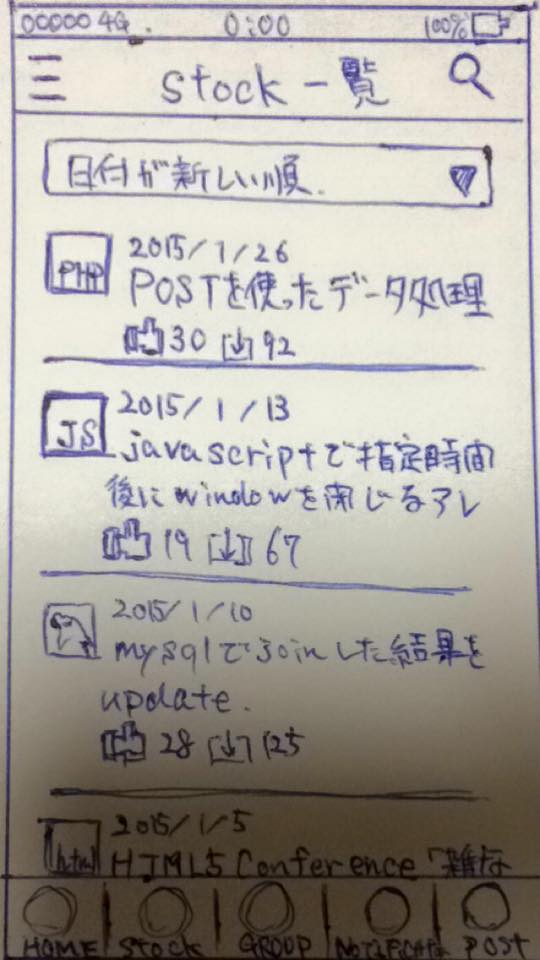 00000 4G.
0:00
100%
Stock一覧
日付が新しい順.
PHP
2015/1/26
POSTを使ったデータ処理
30
92
JS
2015/1/13
javascriptで指定時間
後にwindowを閉じるアレ
19
67
2015/1/10
mysqlでjoinした結果を
update.
28
125
2015/1/5
html
HTML5 Conference 「雑な
HOME
Stock
GROUP
POST